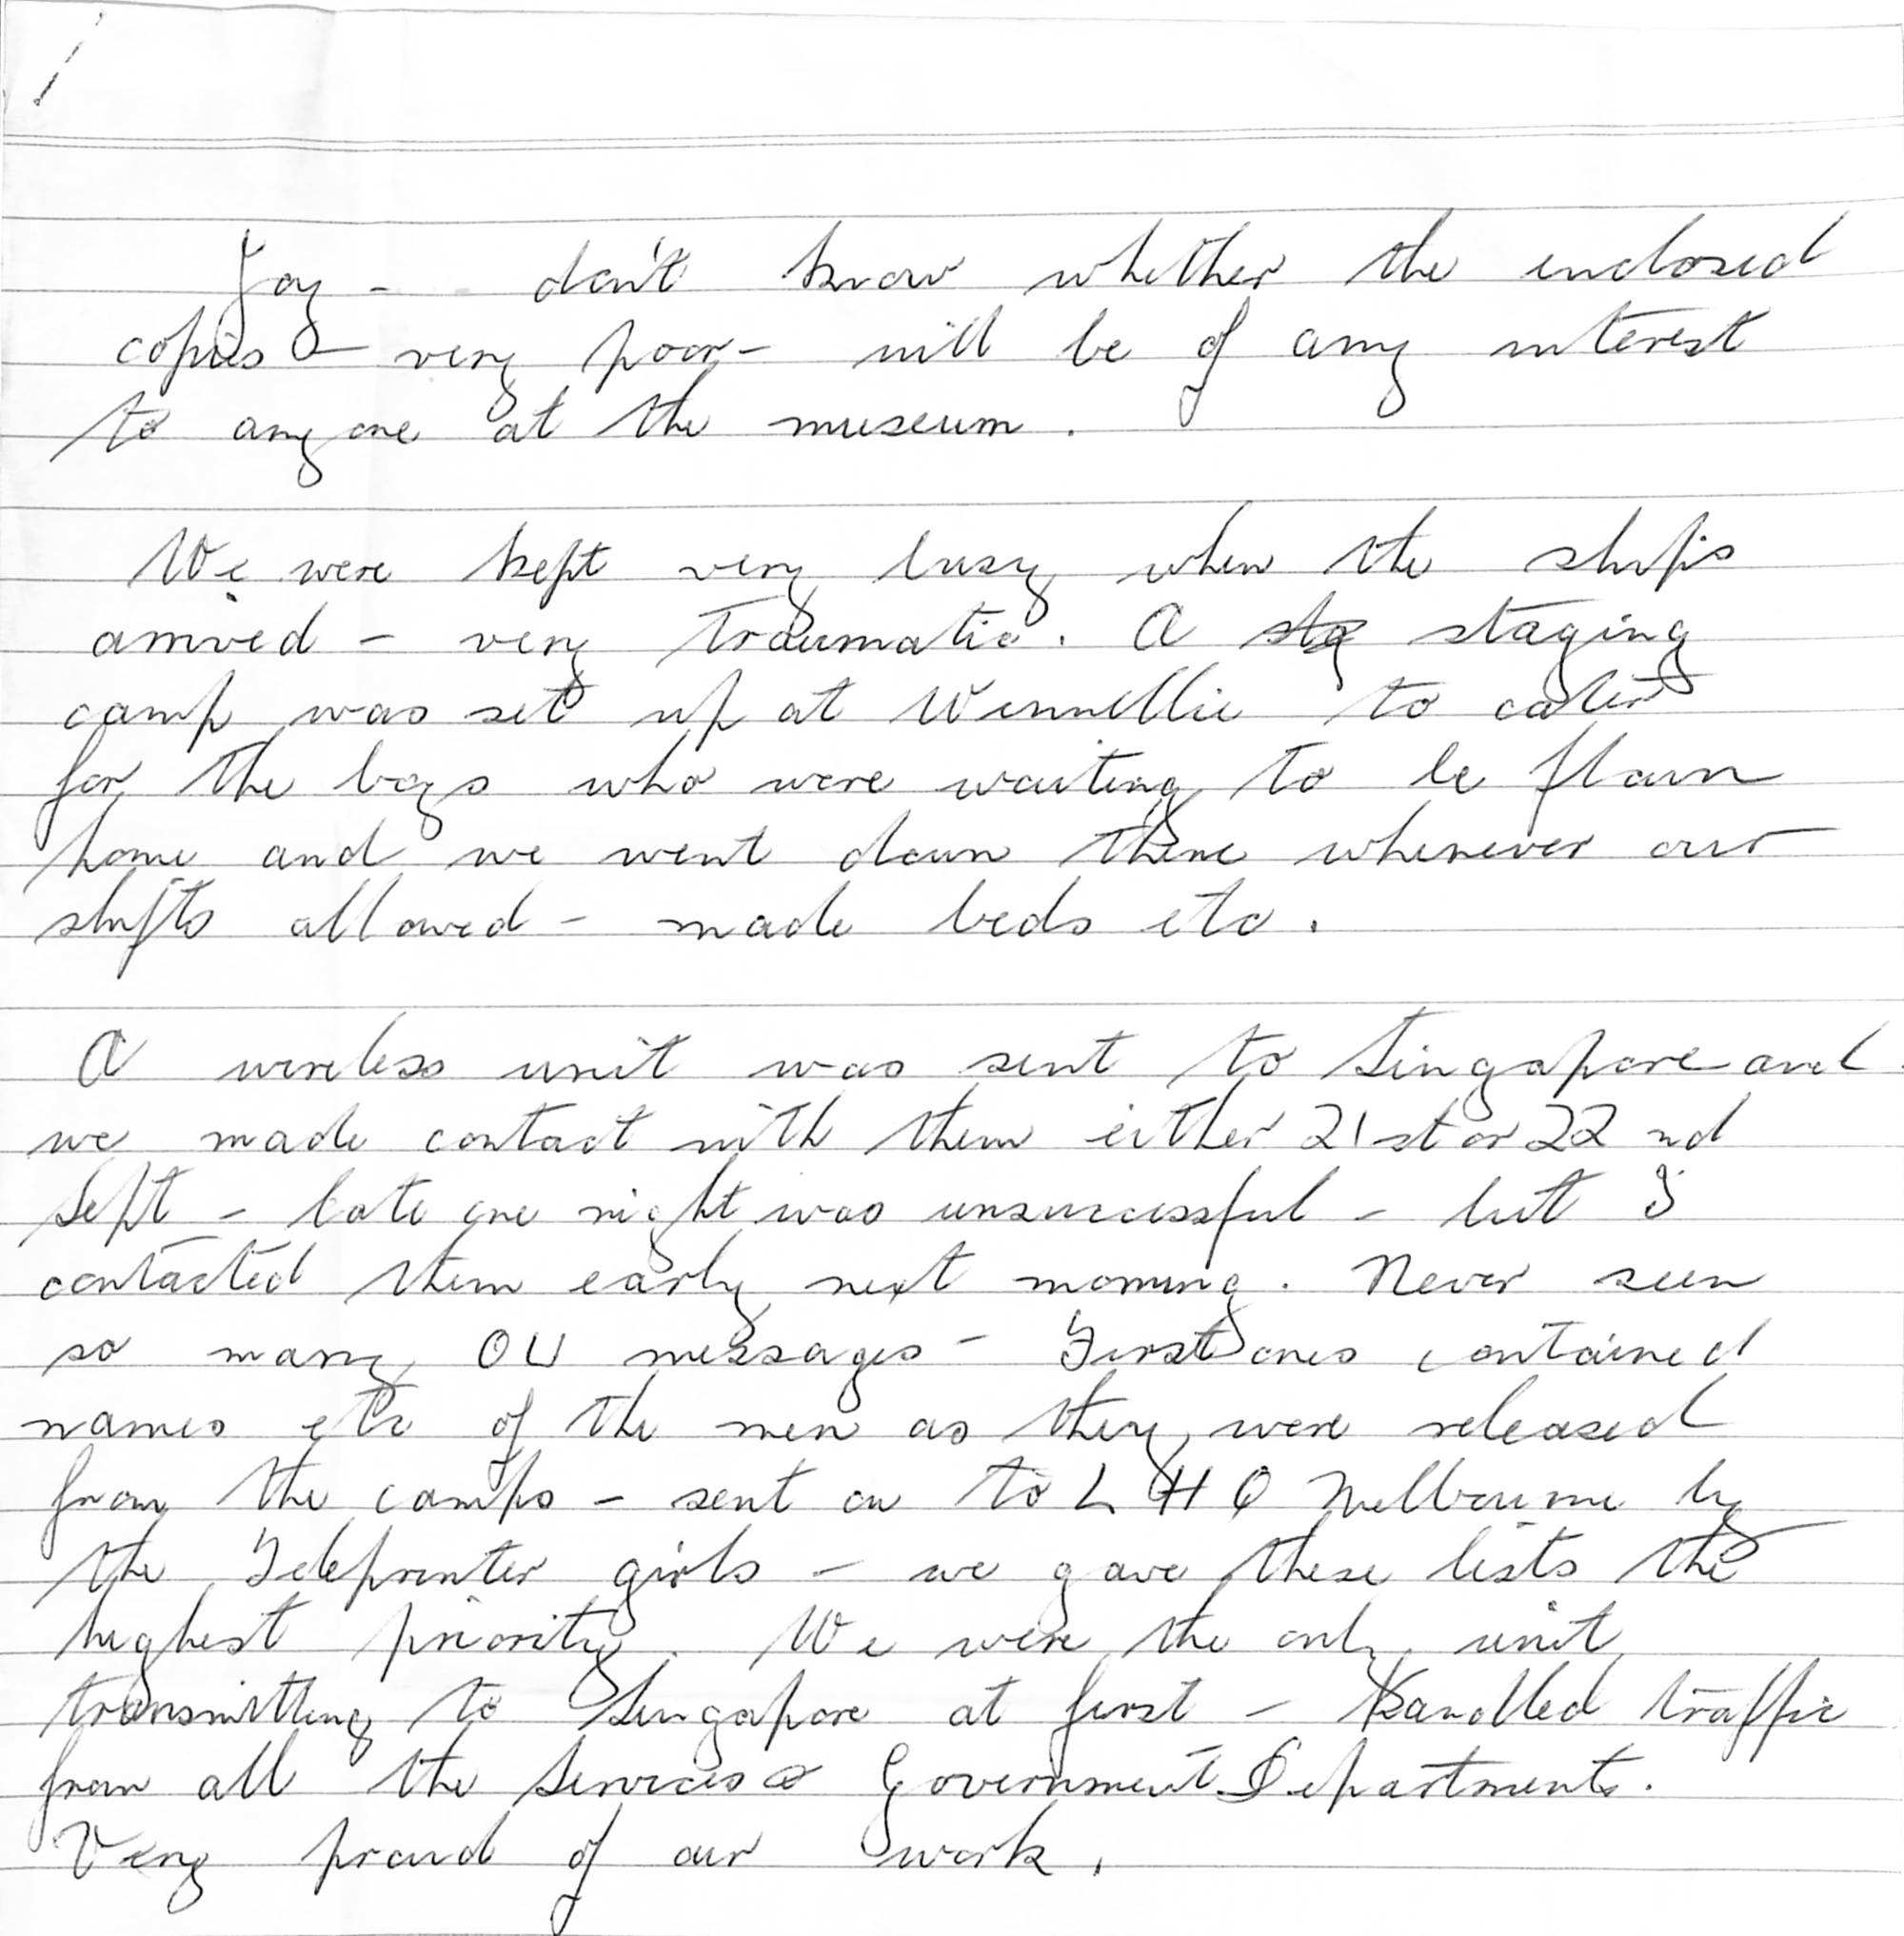 Joy - don't know whether the enclosed
copies - very poor - will be of any interest
to anyone at the museum.
We were kept very busy when the ships
arrived - very traumatic. A sta staging
camp was set up at Winnellie to cater
for the boys who were waiting to be flown
home and we went down there whenever our
shifts allowed - made beds etc.
A wireless unit was sent to Singapore and
we made contact with them either 21st or 22nd
Sept - late one night was unsuccessful - but I
contacted them early next morning. Never seen
so many OU messages - First ones contained
names etc of the men as they were released
from the camps - sent on to LHQ Melbourne by
the Teleprinter girls - we gave these lists the
highest priority. We were the only unit
transmitting to Singapore at first - Handled traffic
from all the Services & Government Departments.
Very proud of our work.